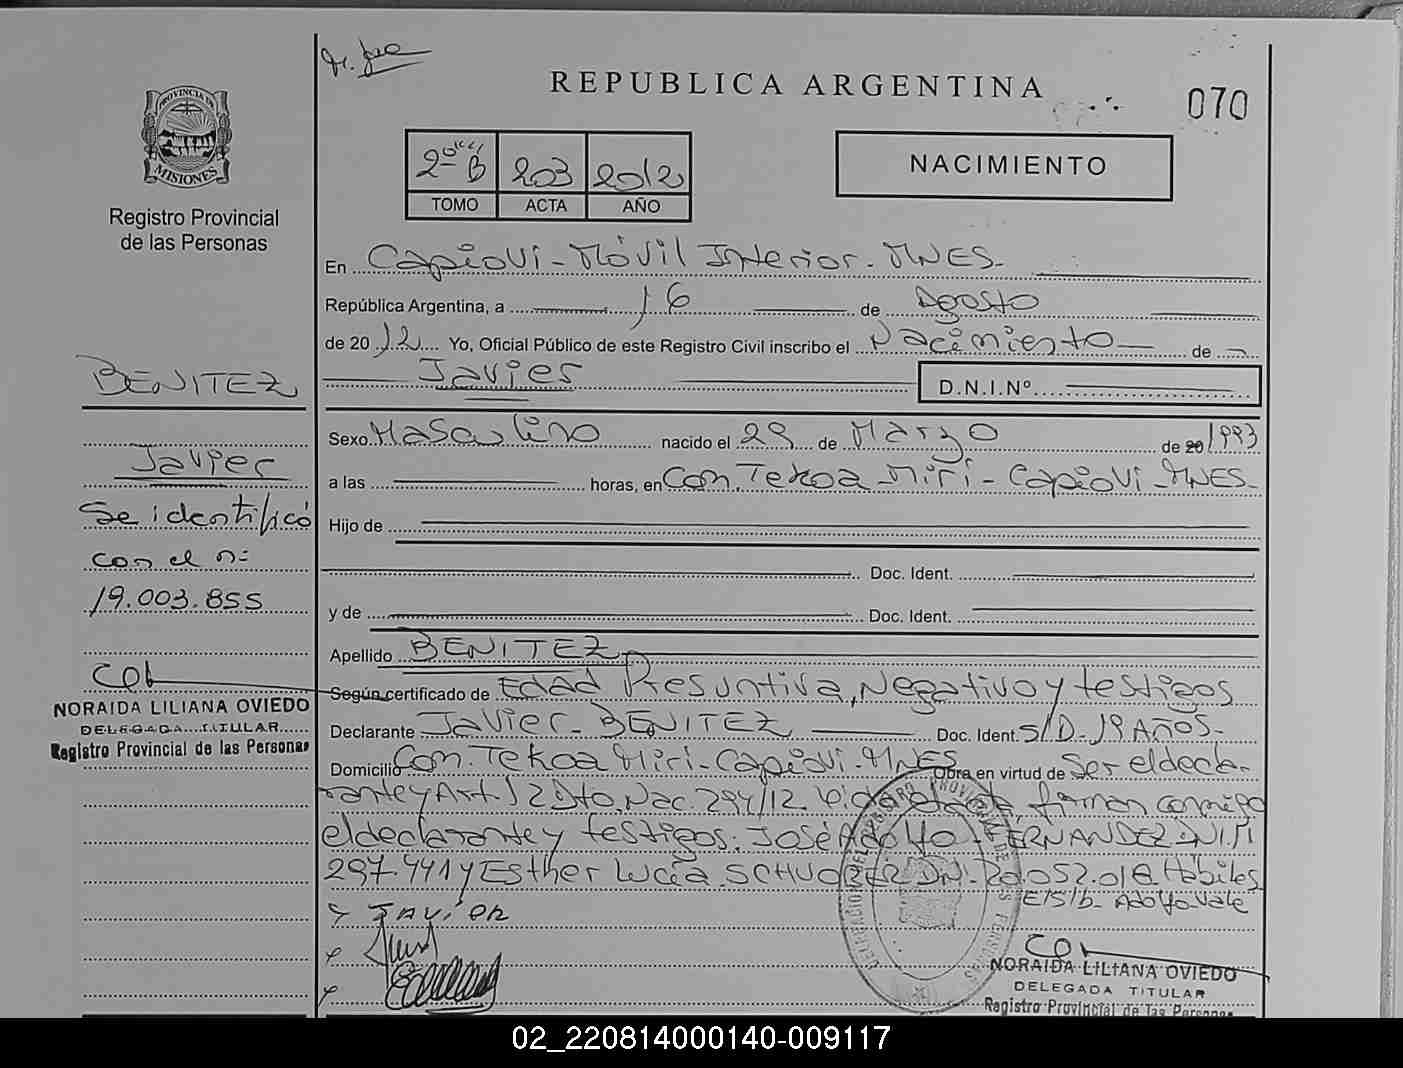 REPUBLICA ARGENTINA
070
PROVINCIA DE
MISIONES
Registro Provincial
de las Personas
2º B 203 2012
TOMO ACTA AÑO
NACIMIENTO
En Capiovi - Móvil Interior - MNES-
República Argentina, a 16 de Agosto
de 2012 Yo, Oficial Público de este Registro Civil inscribo el Nacimiento de
Javier
D.N.I.Nº
BENITEZ
Javier
Se identificó
con el nº
19.003.855
NORAIDA LILIANA OVIEDO
DELEGADA TITULAR
Registro Provincial de las Personas
Sexo Masculino nacido el 29 de Marzo de 20 1993
a las horas, en Com. Tekoa Miri - Capiovi - MNES-
Hijo de
Doc. Ident.
y de Doc. Ident.
Apellido BENITEZ
Según certificado de Edad Presuntiva, Negativo y testigos
Declarante Javier BENITEZ Doc. Ident. S/D - 19 AÑOS-
Domicilio Com. Tekoa Miri - Capiovi - MNES Obra en virtud de Ser el decla-
rante y Art. 12 Dto. Nac. 294/12 firman conmigo
el declarante y testigos: José Adolfo FERNANDEZ
297.441 y Esther Lucía DNI. 20.052.018 Hábiles
E/S/b- Adolfo Vale
Javier
NORAIDA LILIANA OVIEDO
DELEGADA TITULAR
Registro Provincial de las Personas
02_220814000140-009117